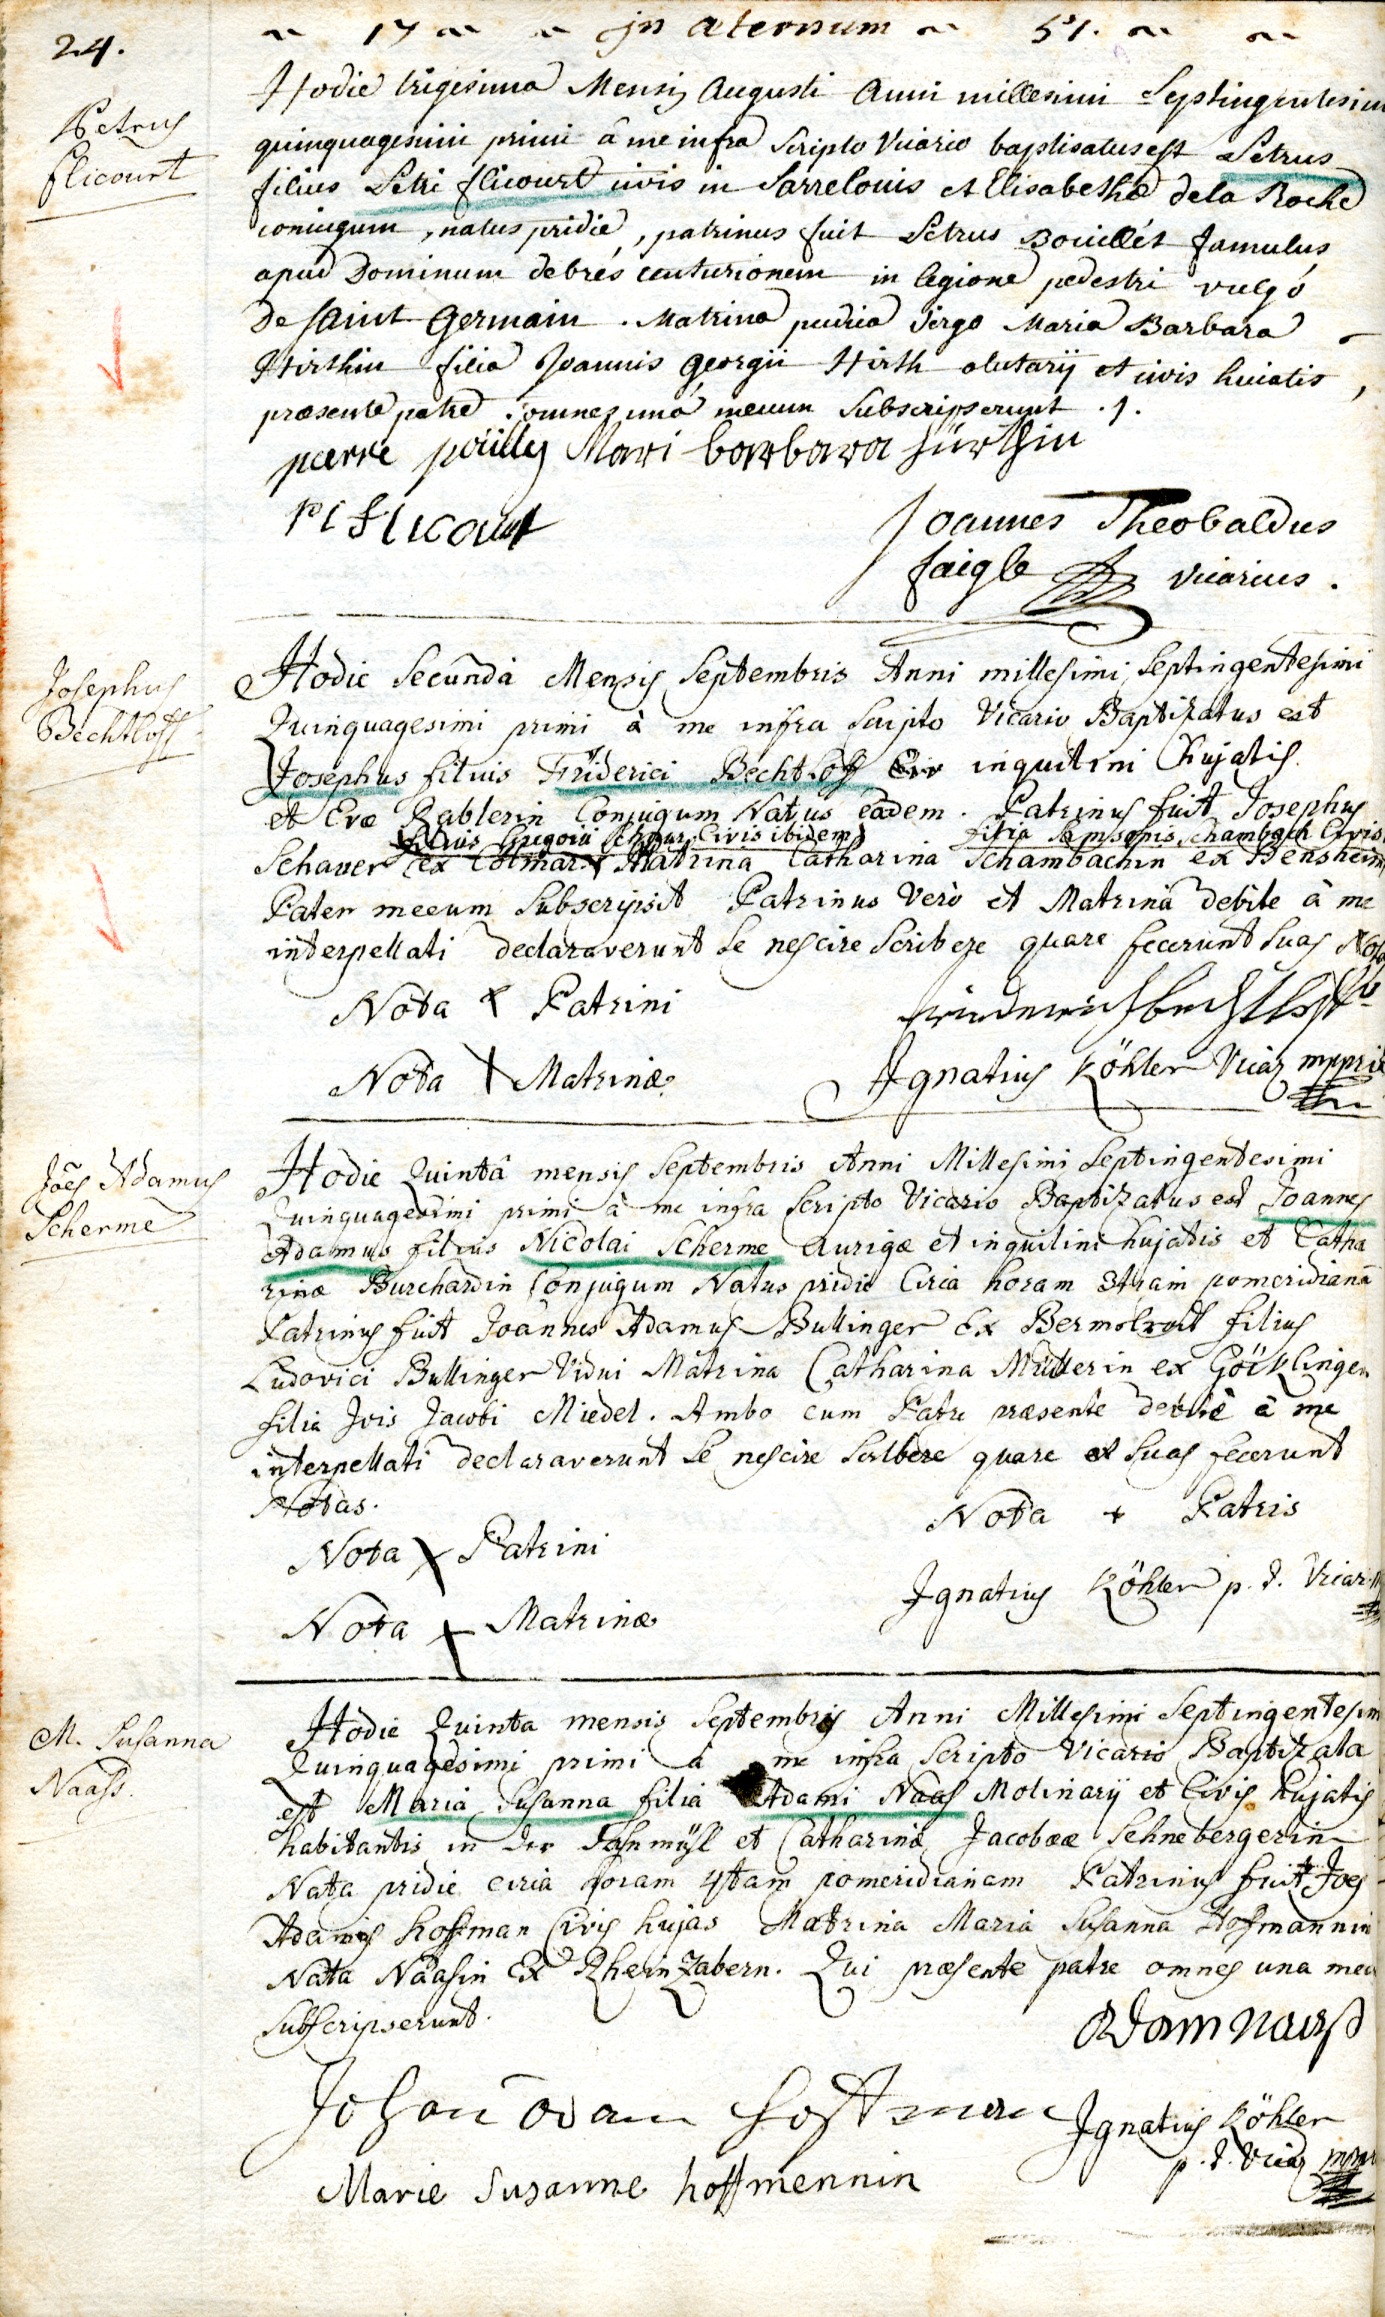 24.
17 in æternum 51.
Petrus
flicourt
Hodie trigesima Mensis Augusti Anni millesimi Septingentesimi
quinquagesimi primi à me infra Scripto Vicario baptisatus est Petrus
filius Petri flicourt civis in Sarrelouis et Elisabethæ de la Roche
coniugum, natus pridie, patrinus fuit Petrus Bouillét famulus
apud Dominum debrés centurionem in legione pedestri vulgó
de saint Germain. Matrina pudica virgo Maria Barbara
Hirthin filia Joannis georgii Hirth alutarÿ et civis huiatis,
præsente patre. omnes unà mecum Subscripserunt.
pierre poüilly Mari barbara hürthin
pi flicourt
Joannes Theobaldus
faigle Vicarius.
Josephus
Bechtloff
Hodie Secunda Mensis Septembris Anni millesimi Septingentesimi
Quinquagesimi primi à me infra Scripto Vicario Baptizatus est
Josephus filius Friderici Bechtloff inquilini hujatis.
et Evæ Rablerin Conjugum Natus eadem. Patrinus fuit Josephus
filius Gregorii Schauer Civis ibidem filia Sampsonis Schambach Civis
Schauer ex Colmar Matrina Catharina Schambachin ex Bensheim
Pater mecum Subscripsit Patrinus Verò et Matrina debite à me
interpellati declaraverunt Se nescire Scribere quare fecerunt Suas Notas
Nota x Patrini
friederich bechtloff
Nota x Matrinæ
Ignatius Köhler Vicar mppria
Joes Adamus
Scherme
Hodie Quintâ mensis Septembris Anni Millesimi Septingentesimi
Quinquagesimi primi à me infra Scripto Vicario Baptizatus est Joannes
Adamus filius Nicolai Scherme Aurigæ et inquilini hujatis et Catha
rinæ Burchardin Conjugum Natus pridie Circa horam 3tiam pomeridianã
Patrinus fuit Joannes Adamus Bullinger Ex filius
Ludovici Bullinger Vidui Matrina Catharina Müllerin ex Göcklingen
filia Jois Jacobi Miedel. Ambo cum Patre præsente debitè à me
interpellati declaraverunt Se nescire Scribere quare et Suas fecerunt
Notas.
Nota + Patris
Nota x Patrini
Ignatius Köhler p. t. Vicar
Nota x Matrinæ
M. Susanna
Naass.
Hodie Quinta mensis Septembris Anni Millesimi Septingentesimi
Quinquagesimi primi à me infra Scripto Vicario Baptizata
est Maria Susanna filia Adami Naas Molinarÿ et Civis hujatis
habitantis in der et Catharinæ Jacobææ Schnebergerin
Nata pridie circa horam 4tam pomeridianam Patrinus fuit Joes
Adamus hoffman Civis hujas Matrina Maria Susanna Hoffmannin
Nata Naasin Ex Rheinzabern. Qui præsente patre omnes una mecu
Subscripserunt.
Adam Naasß
Johan adam hoffman
Ignatius Köhler
p. t. Vicar
Marie Susanne hoffmennin